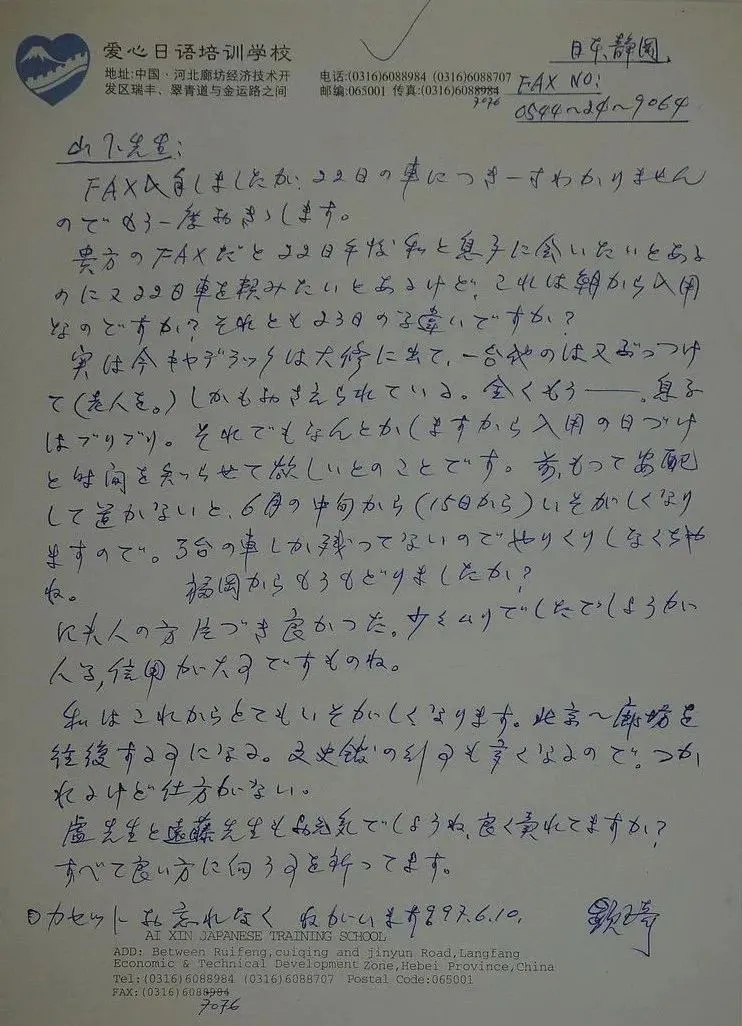 爱心日语培训学校
地址:中国·河北廊坊经济技术开
发区瑞丰、翠青道与金运路之间
电话:(0316)6088984 (0316)6088707
邮编:065001 传真:(0316)6088984
7076
日本静岡
FAX NO:
0544~24~9064
山下先生:
FAX入自しましたが、22日の車につき一すわかりません
のでもう一度おききします。
貴方のFAXだと22日午後私と息子に会いたいとある
のに又22日車を頼みたいとあるけど、これは朝から入用
なのですか?それとも23日の了違いですか?
実は今キャデラックは大修に出て、一台他のは又ぶっつけ
て(老人を。)しかもおさえられている。全くもう――。息子
はブリブリ。それでもなんとかしますから入用の日づけ
と時间を知らせて欲しいとのことです。前もって按配
して置かないと、6月の中旬から(15日から)いそがしくなり
ますので。3台の車しか残ってないのでやりくりしなくちゃ
ね。 福岡からもうもどりましたか?
夫人の方片づき良かった。少ムリでしたでしょうが
人、信用が大ですものね。
私はこれからとてもいそがしくなります。北京~廊坊を
往復するになる。文史館のも多くなるので。つか
れるけど仕方がない。
盧先生と遠藤先生もお元気でしょうね、良く売れてますか?
すべて良い方に向うを祈ってます。
カセットお忘れなく ねがいます 997.6.10. 顕琦
AI XIN JAPANESE TRAINING SCHOOL
ADD: Between Ruifeng,cuiqing and jinyun Road,Langfang
Economic & Technical Development Zone,Hebei Province,China
Tel:(0316)6088984 (0316)6088707 Postal Code:065001
FAX:(0316)6088984
7076